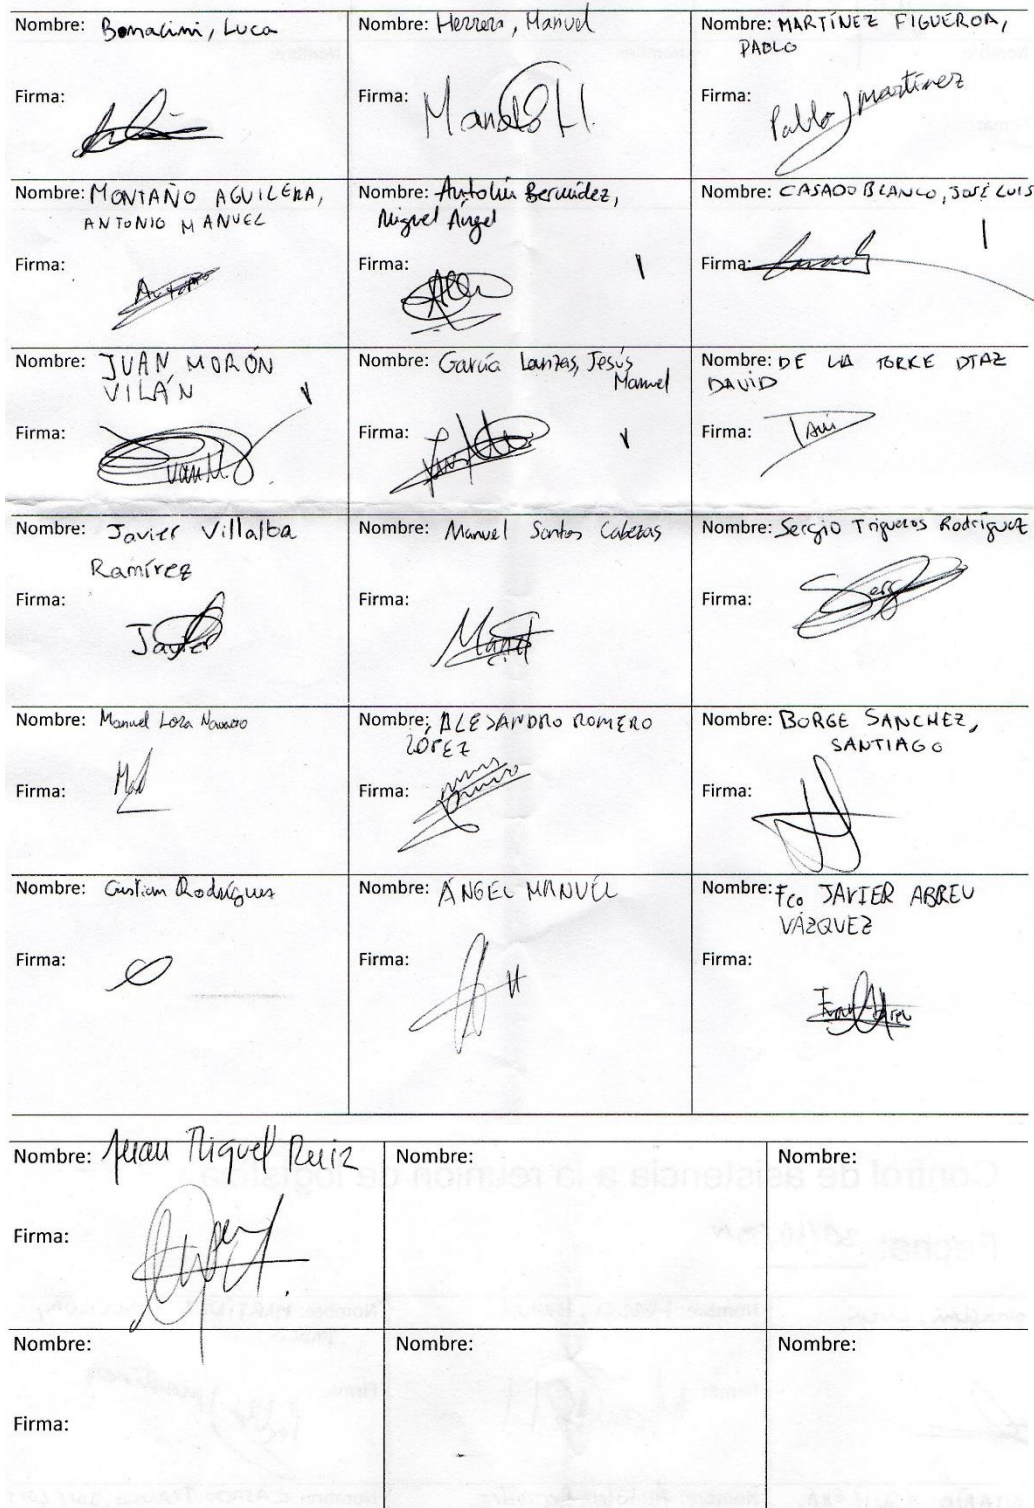 Nombre: Bonacini, Luca
Firma:
Nombre: Herrera, Manuel
Firma: Manolo H.
Nombre: MARTÍNEZ FIGUEROA,
PABLO
Firma: Pablo J Martínez
Nombre: MONTAÑO AGUILERA,
ANTONIO MANUEL
Firma: Antonio
Nombre: Antolín Bermúdez,
Miguel Ángel
Firma:
Nombre: CASADO BLANCO, JOSÉ LUIS
Firma:
Nombre: JUAN MORÓN
VILÁN
Firma:
Nombre: García Lanzas, Jesús
Manuel
Firma:
Nombre: DE LA TORRE DIAZ
DAVID
Firma:
Nombre: Javier Villalba
Ramírez
Firma: Javier
Nombre: Manuel Santos Cabezas
Firma:
Nombre: Sergio Trigueros Rodríguez
Firma:
Nombre: Manuel Lora Navarro
Firma:
Nombre: ALEJANDRO ROMERO
LÓPEZ
Firma:
Nombre: BORGE SANCHEZ,
SANTIAGO
Firma:
Nombre: Cristian Rodríguez
Firma:
Nombre: ÁNGEL MANUÉL
Firma:
Nombre: Fco JAVIER ABREU
VÁZQUEZ
Firma:
Nombre: Juan Miguel Ruiz
Firma:
Nombre:
Nombre:
Nombre:
Firma:
Nombre:
Nombre: